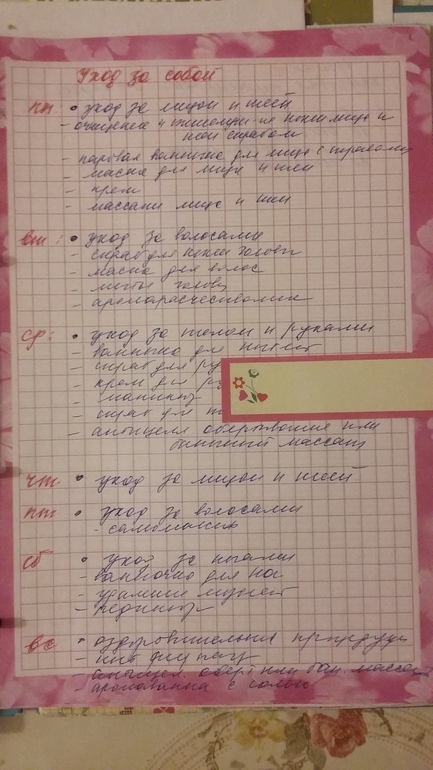 Уход за собой
пн • уход за лицом и шеей
- очищение кожи лица и
шеи скрабом
- паровая ванночка для лица с травами
- маска для лица и шеи
- крем
- массаж лица и шеи
вт: • уход за волосами
- скраб для кожи головы
- маска для волос
- мытьё головы
- аромарасчёсывание
ср: • уход за телом и руками
- ванночка для ногтей
- скраб для ру
- крем для ру
- маникюр
- скраб для т
- антицелл обёртывание или
баночный массаж
чт • уход за лицом и шеей
пт • уход за волосами
- самомассаж
сб • уход за ногами
- ванночка для ног
- удаление
- педикюр
вс • оздоровительные процедуры
- антицел. обёрт или бан. массаж
- ароматванна с солью